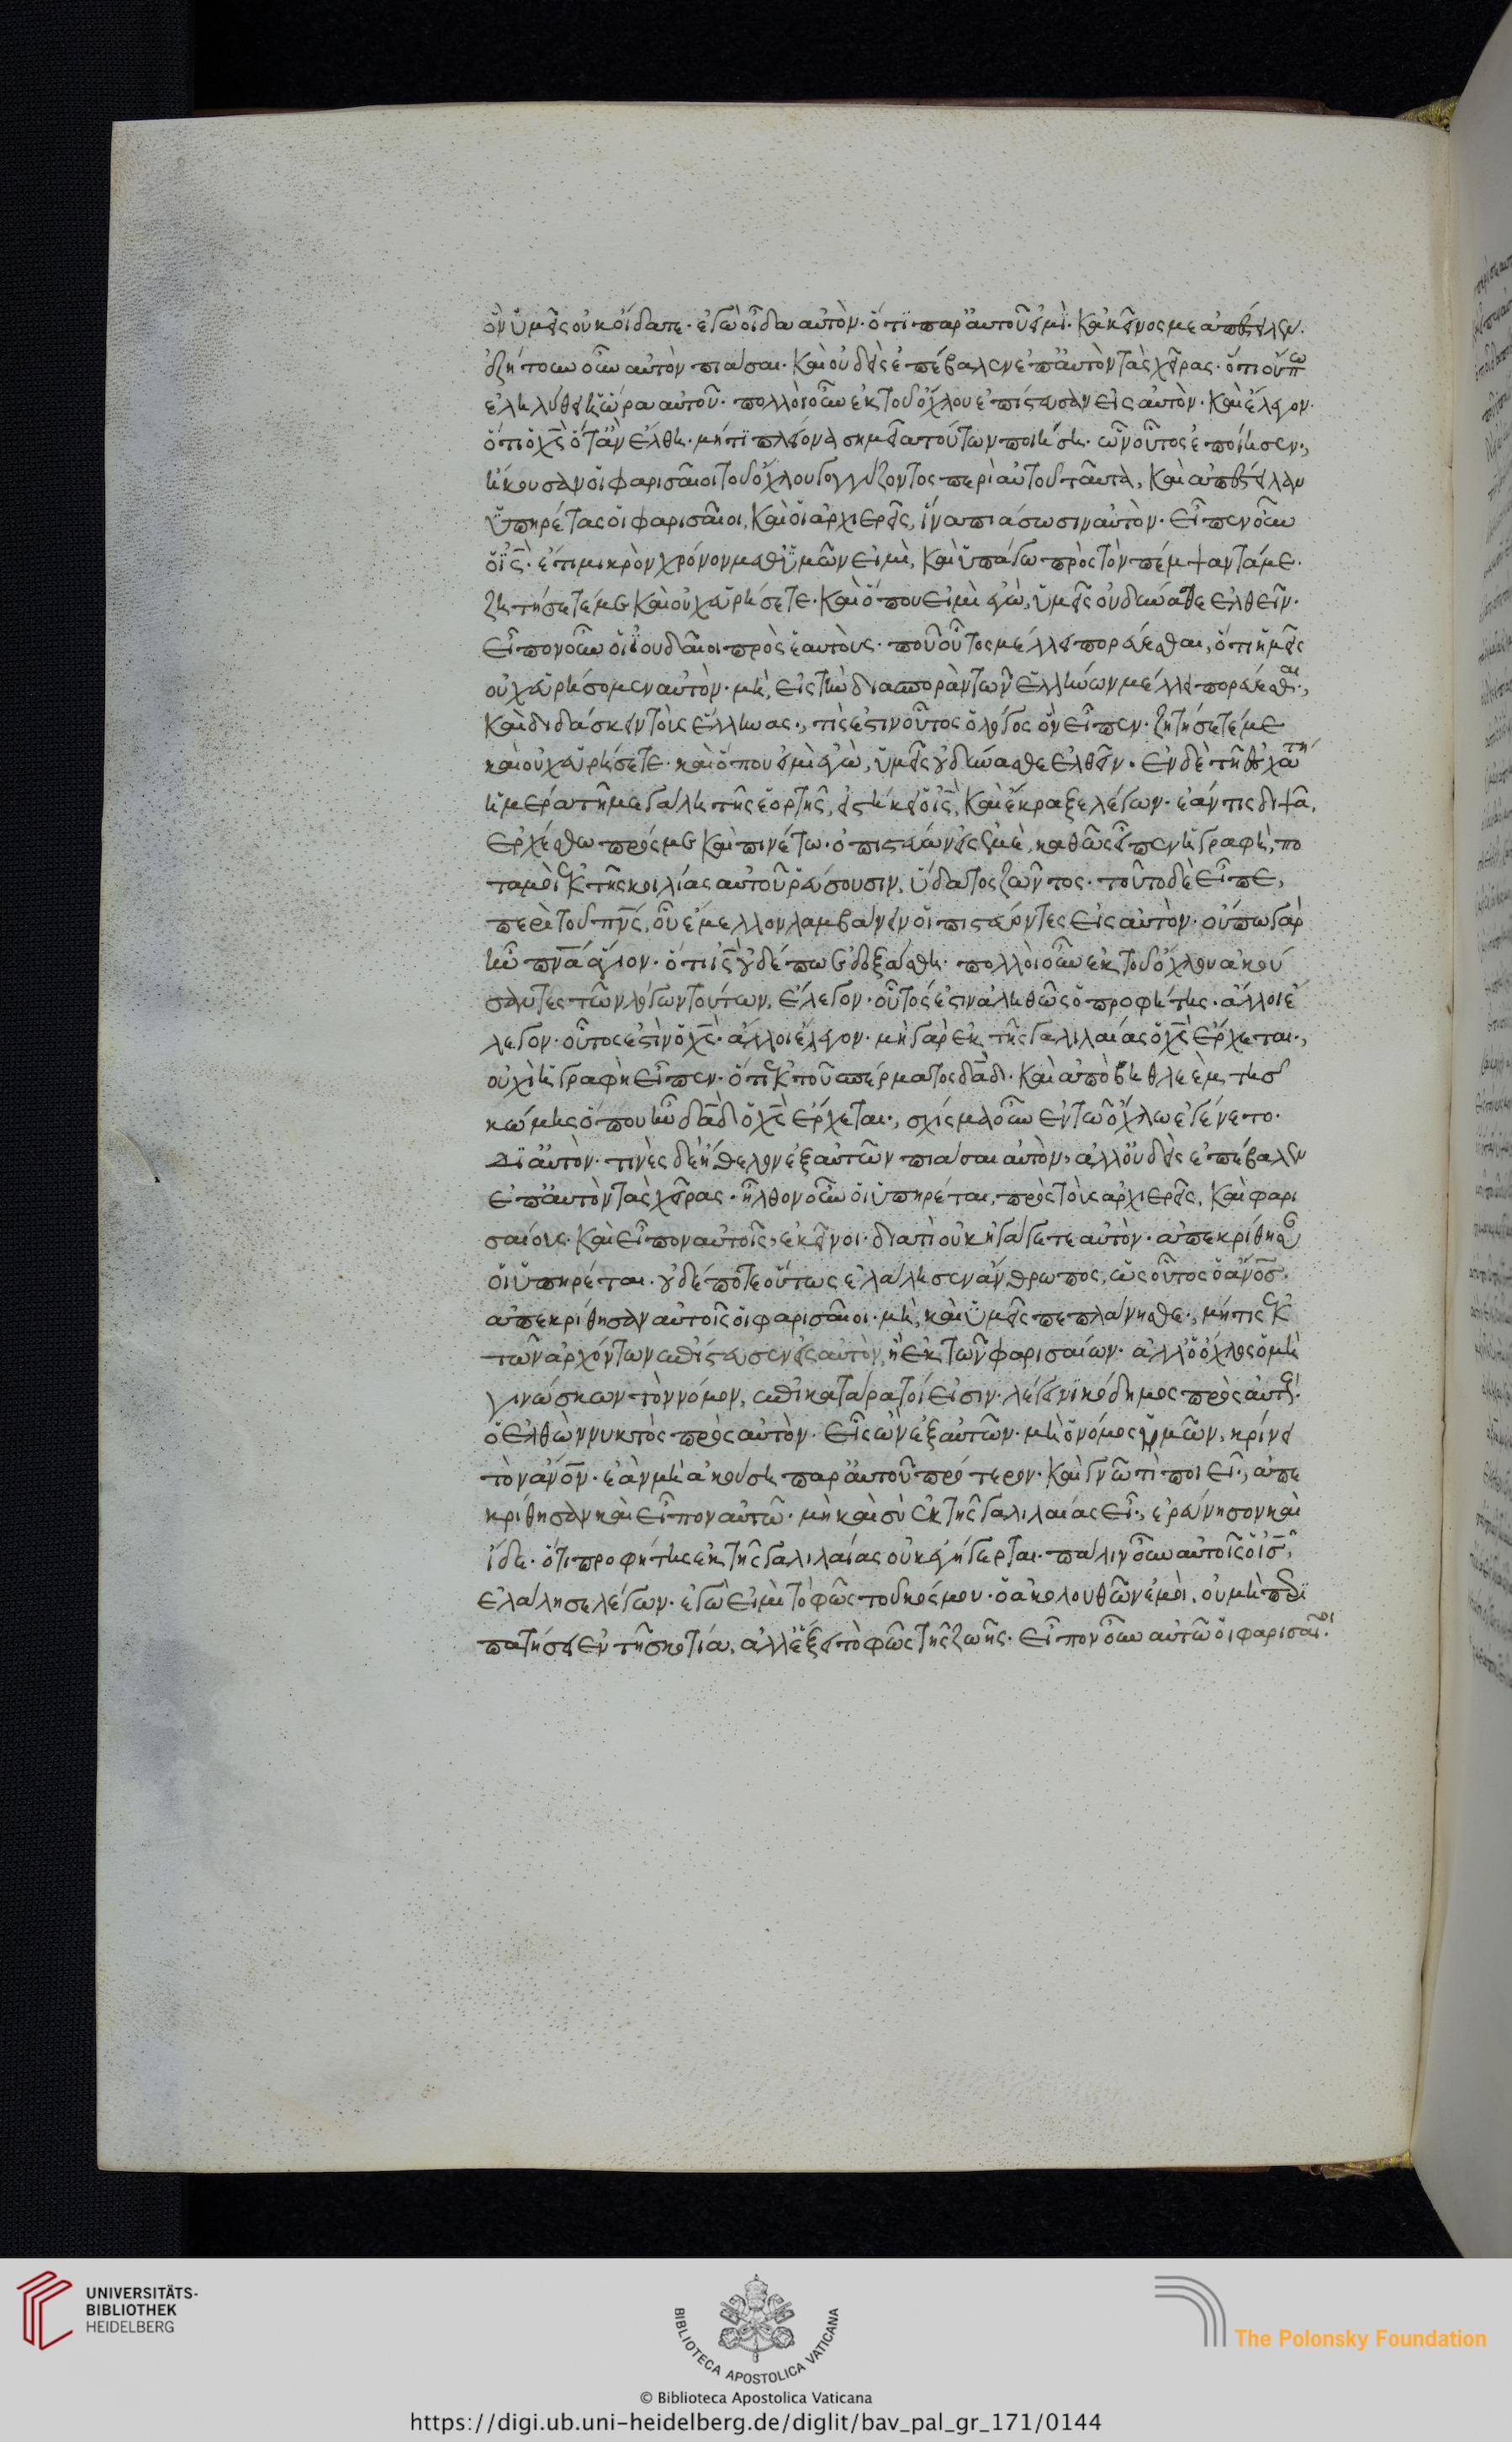 ὃν ὑμεῖς οὐκ οἴδατε· ἐγὼ οἶδα αὐτὸν· ὅτι παρ' αὐτοῦ εἰμὶ· κἀκεῖνος με ἀπέστειλεν·
ἐζήτουν οὖν αὐτὸν πιάσαι· καὶ οὐδεὶς ἐπέβαλεν ἐπ' αὐτὸν τὰς χεῖρας· ὅτι οὔπω
ἐληλύθει ἡ ὥρα αὐτοῦ· πολλοὶ οὖν ἐκ τοῦ ὄχλου ἐπίστευσαν εἰς αὐτὸν· καὶ ἔλεγον·
ὅτι ὁ χς ὅταν ἔλθη· μήτι πλείονα σημεῖα τούτων ποιήση· ὧν οὗτος ἐποίησεν·,
ἤκουσαν οἱ φαρισαῖοι τοῦ ὄχλου γογγύζοντος περὶ αὐτοῦ ταῦτα, καὶ ἀπέστειλαν
ὑπηρέτας οἱ φαρισαῖοι, καὶ οἱ ἀρχιερεῖς, ἵνα πιάσωσιν αὐτὸν· εἶπεν οὖν
ὁ ις· ἔτι μικρὸν χρόνον μεθ' ὑμῶν εἰμὶ, καὶ ὑπάγω πρὸς τὸν πέμψαντά με·
ζητήσετέ με καὶ οὐχ εὑρήσετε· καὶ ὅπου εἰμὶ ἐγὼ, ὑμεῖς οὐ δύνασθε ἐλθεῖν·
εἶπον οὖν οἱ ἰουδαῖοι πρὸς ἑαυτοὺς· ποῦ οὗτος μέλλει πορεύεσθαι, ὅτι ἡμεῖς
οὐχ εὑρήσομεν αὐτὸν· μὴ, εἰς τὴν διασπορὰν τῶν ἑλλήνων μέλλει πορεύεσθαι·,
καὶ διδάσκειν τοὺς ἕλληνας·, τίς ἐστιν οὗτος ὁ λόγος ὃν εἶπεν· ζητήσετέ με
καὶ οὐχ εὑρήσετε· καὶ ὅπου εἰμὶ ἐγὼ, ὑμεῖς οὐ δύνασθε ἐλθεῖν· ἐν δὲ τῇ ἐσχάτη
ἡμέρα τῇ μεγάλη τῆς ἑορτῆς, εἱστήκει ὁ ις, καὶ ἔκραξε λέγων· ἐάν τις διψᾶ,
ἐρχέσθω πρός με καὶ πινέτω· ὁ πιστεύων εἰς ἐμὲ, καθὼς εἶπεν ἡ γραφὴ, πο
ταμοὶ ἐκ τῆς κοιλίας αὐτοῦ ῥεύσουσιν, ὕδατος ζῶντος· τοῦτο δὲ εἶπε,
περὶ τοῦ πνς, οὗ ἔμελλον λαμβάνειν οἱ πιστεύοντες εἰς αὐτὸν· οὔπω γὰρ
ἦν πνα ἅγιον· ὅτι ις οὐδέπω ἐδοξάσθη· πολλοὶ οὖν ἐκ τοῦ ὄχλου ἀκού
σαντες τῶν λόγων τούτων, ἔλεγον· οὗτός ἐστιν ἀληθῶς ὁ προφήτης· ἄλλοι ἔ
λεγον· οὗτος ἐστὶν ὁ χς· ἄλλοι ἔλεγον· μὴ γὰρ ἐκ τῆς γαλιλαίας ὁ χς ἔρχεται·,
οὐχὶ ἡ γραφὴ εἶπεν· ὅτι ἐκ τοῦ σπέρματος δαδ· καὶ ἀπὸ βηθλεὲμ τῆς
κώμης ὅπου ἦν δαδ ὁ χς ἔρχεται·, σχίσμα οὖν ἐν τῶ ὄχλω ἐγένετο·
δι' αὐτὸν· τινὲς δὲ ἤθελον ἐξ αὐτῶν πιάσαι αὐτὸν, ἀλλ' οὐδεὶς ἐπέβαλεν
ἐπ' αὐτὸν τὰς χεῖρας· ἦλθον οὖν οἱ ὑπηρέται, πρὸς τοὺς ἀρχιερεῖς, καὶ φαρι
σαίους· καὶ εἶπον αὐτοῖς, ἐκεῖνοι· διατὶ οὐκ ἠγάγετε αὐτὸν· ἀπεκρίθησαν
οἱ ὑπηρέται· οὐδέποτε οὕτως ἐλάλησεν ἄνθρωπος, ὡς οὗτος ὁ ἄνος·
ἀπεκρίθησαν αὐτοῖς οἱ φαρισαῖοι· μὴ, καὶ ὑμεῖς πεπλάνησθε·, μή τις ἐκ
τῶν ἀρχόντων ἐπίστευσεν εἰς αὐτὸν, ἢ ἐκ τῶν φαρισαίων· ἀλλ' ὁ ὄχλος ὁ μὴ
γινώσκων τὸν νόμον, ἐπικατάρατοί εἰσιν· λέγει νικόδημος πρὸς αὐτούς·
ὁ ἐλθὼν νυκτὸς πρὸς αὐτὸν· εἷς ὢν ἐξ αὐτῶν· μὴ ὁ νόμος ἡμῶν, κρίνει
τὸν ἄνον· ἐὰν μὴ ἀκούση παρ' αὐτοῦ πρότερον· καὶ γνῶ τί ποιεῖ·, ἀπε
κρίθησαν καὶ εἶπον αὐτῶ· μὴ καὶ σὺ ἐκ τῆς γαλιλαίας εἶ·, ἐραύνησον καὶ
ἴδε· ὅτι προφήτης ἐκ τῆς γαλιλαίας οὐκ ἐγήγερται· πάλιν οὖν αὐτοῖς ὁ ις,
ἐλάλησε λέγων· ἐγὼ εἰμὶ τὸ φῶς τοῦ κόσμου· ὁ ἀκολουθῶν ἐμοὶ, οὐ μὴ περι
πατήσει ἐν τῇ σκοτία, ἀλλ' ἕξει τὸ φῶς τῆς ζωῆς· εἶπον οὖν αὐτῶ οἱ φαρισαῖοι·
UNIVERSITÄTS-
BIBLIOTHEK
HEIDELBERG
BIBLIOTECA APOSTOLICA VATICANA
The Polonsky Foundation
© Biblioteca Apostolica Vaticana
https://digi.ub.uni-heidelberg.de/diglit/bav_pal_gr_171/0144